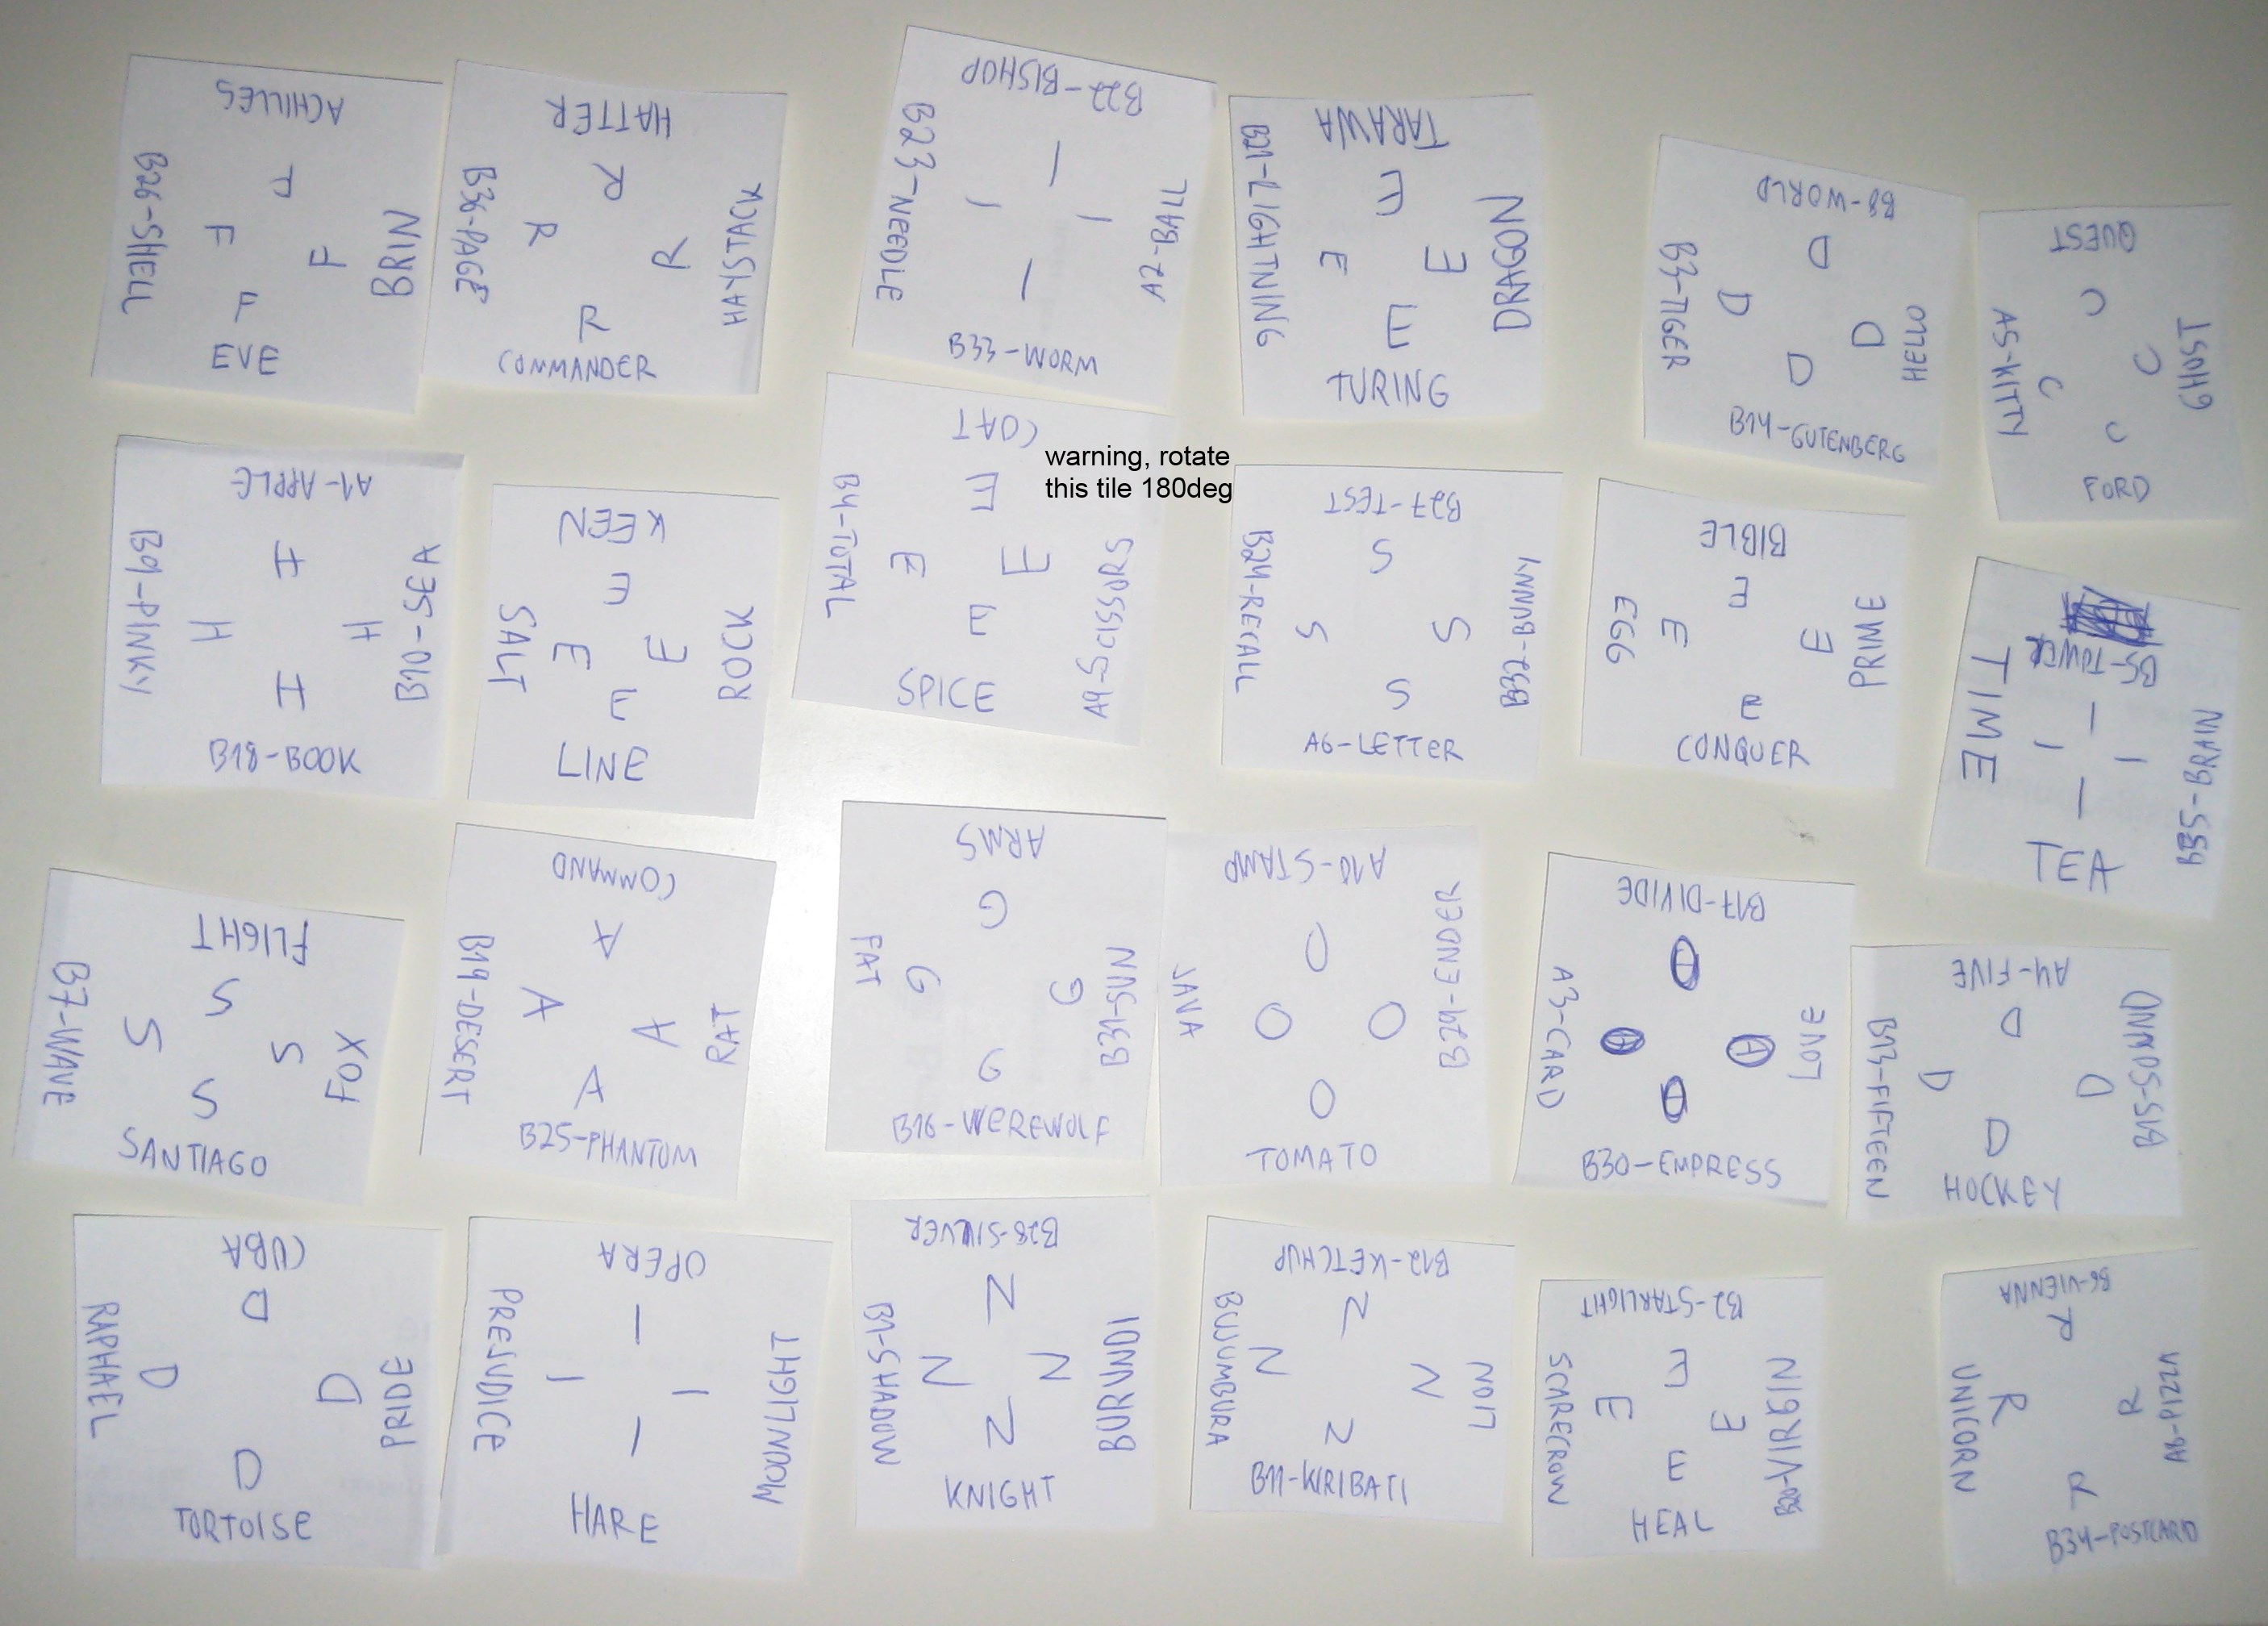 ACHILLES
B26-SHELL
F
F
F
F
BRIN
EVE
HATTER
B36-PAGE
R
R
R
R
HAYSTACK
COMMANDER
B22-BISHOP
B23-NEEDLE
I
I
I
I
A7-BALL
B33-WORM
TARAWA
B21-LIGHTNING
E
E
E
E
DRAGON
TURING
B8-WORLD
B3-TIGER
D
D
D
D
HELLO
B14-GUTENBERG
QUEST
A5-KITTY
C
C
C
C
GHOST
FORD
A1-APPLE
B9-PINKY
H
H
H
H
B10-SEA
B18-BOOK
KEEN
SALT
E
E
E
E
ROCK
LINE
COAT
warning, rotate
this tile 180deg
B4-TOTAL
E
E
E
E
A9-SCISSORS
SPICE
B27-TEST
B24-RECALL
S
S
S
S
B32-BUNNY
A6-LETTER
BIBLE
EGG
E
E
E
E
PRIME
CONQUER
B5-TOWER
TIME
I
I
I
I
B35-BRAIN
TEA
FLIGHT
B7-WAVE
S
S
S
S
FOX
SANTIAGO
COMMAND
B19-DESERT
A
A
A
A
RAT
B25-PHANTOM
ARMS
FAT
G
G
G
G
B31-SUN
B16-WEREWOLF
A10-STAMP
JAVA
O
O
O
O
B29-ENDER
TOMATO
B17-DIVIDE
A3-CARD
LOVE
B30-EMPRESS
A4-FIVE
B13-FIFTEEN
D
D
D
D
B15-SOUND
HOCKEY
CUBA
RAPHAEL
D
D
D
D
PRIDE
TORTOISE
OPERA
PREJUDICE
I
I
I
I
MOONLIGHT
HARE
B28-SILVER
B1-SHADOW
N
N
N
N
BURUNDI
KNIGHT
B12-KETCHUP
BUJUMBURA
N
N
N
N
LION
B11-KIRIBATI
B2-STARLIGHT
SCARECROW
E
E
E
E
B20-VIRGIN
HEAL
B6-VIENNA
UNICORN
R
R
R
R
A8-PIZZA
B34-POSTCARD